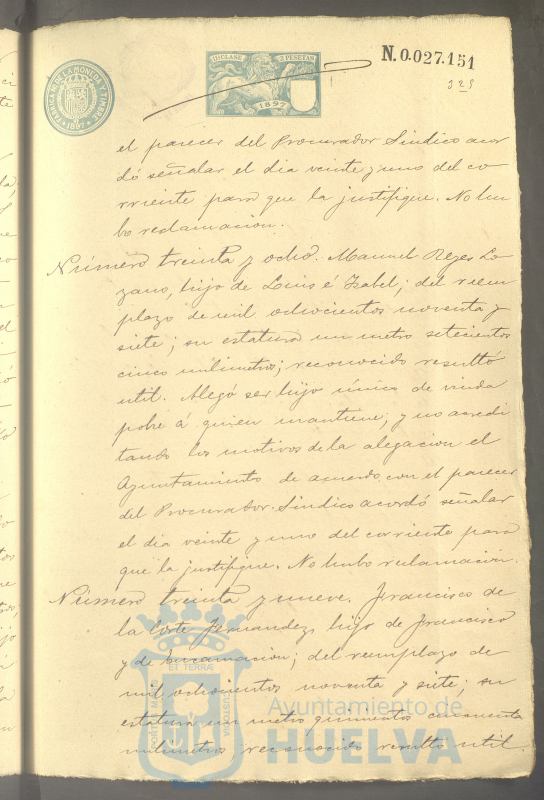 FÁBRICA N. DE LA MONEDA Y TIMBRE
1897
11ª CLASE 2 PESETAS
1897
N.0.027.151
325
el parecer del Procurador Síndico acor
dó señalar el dia veinte y uno del co
rriente para que la justifique. No hu
bo reclamacion.
Número treinta y ocho. Manuel Reyes Lo
zano, hijo de Louis é Isabel; del reem
plazo de mil ochocientos noventa y
siete; su estatura un metro setecientos
cinco milimetros; reconocido resultó
util. Alegó ser hijo único de viuda
pobre á quien mantiene; y no acredi
tando los motivos de la alegacion el
Ayuntamiento de acuerdo con el parecer
del Procurador Síndico acordó señalar
el dia veinte y uno del corriente para
que la justifique. No hubo reclamacion.
Número treinta y nueve. Francisco de
la Corte Fernandez, hijo de Francisco
y de Encarnacion; del reemplazo de
mil ochocientos noventa y siete; su
estatura un metro quinientos cincuenta
milimetros reconocido resultó util.
ET TERRÆ
PORTUS MARIS
CUSTODIA
Ayuntamiento de
HUELVA